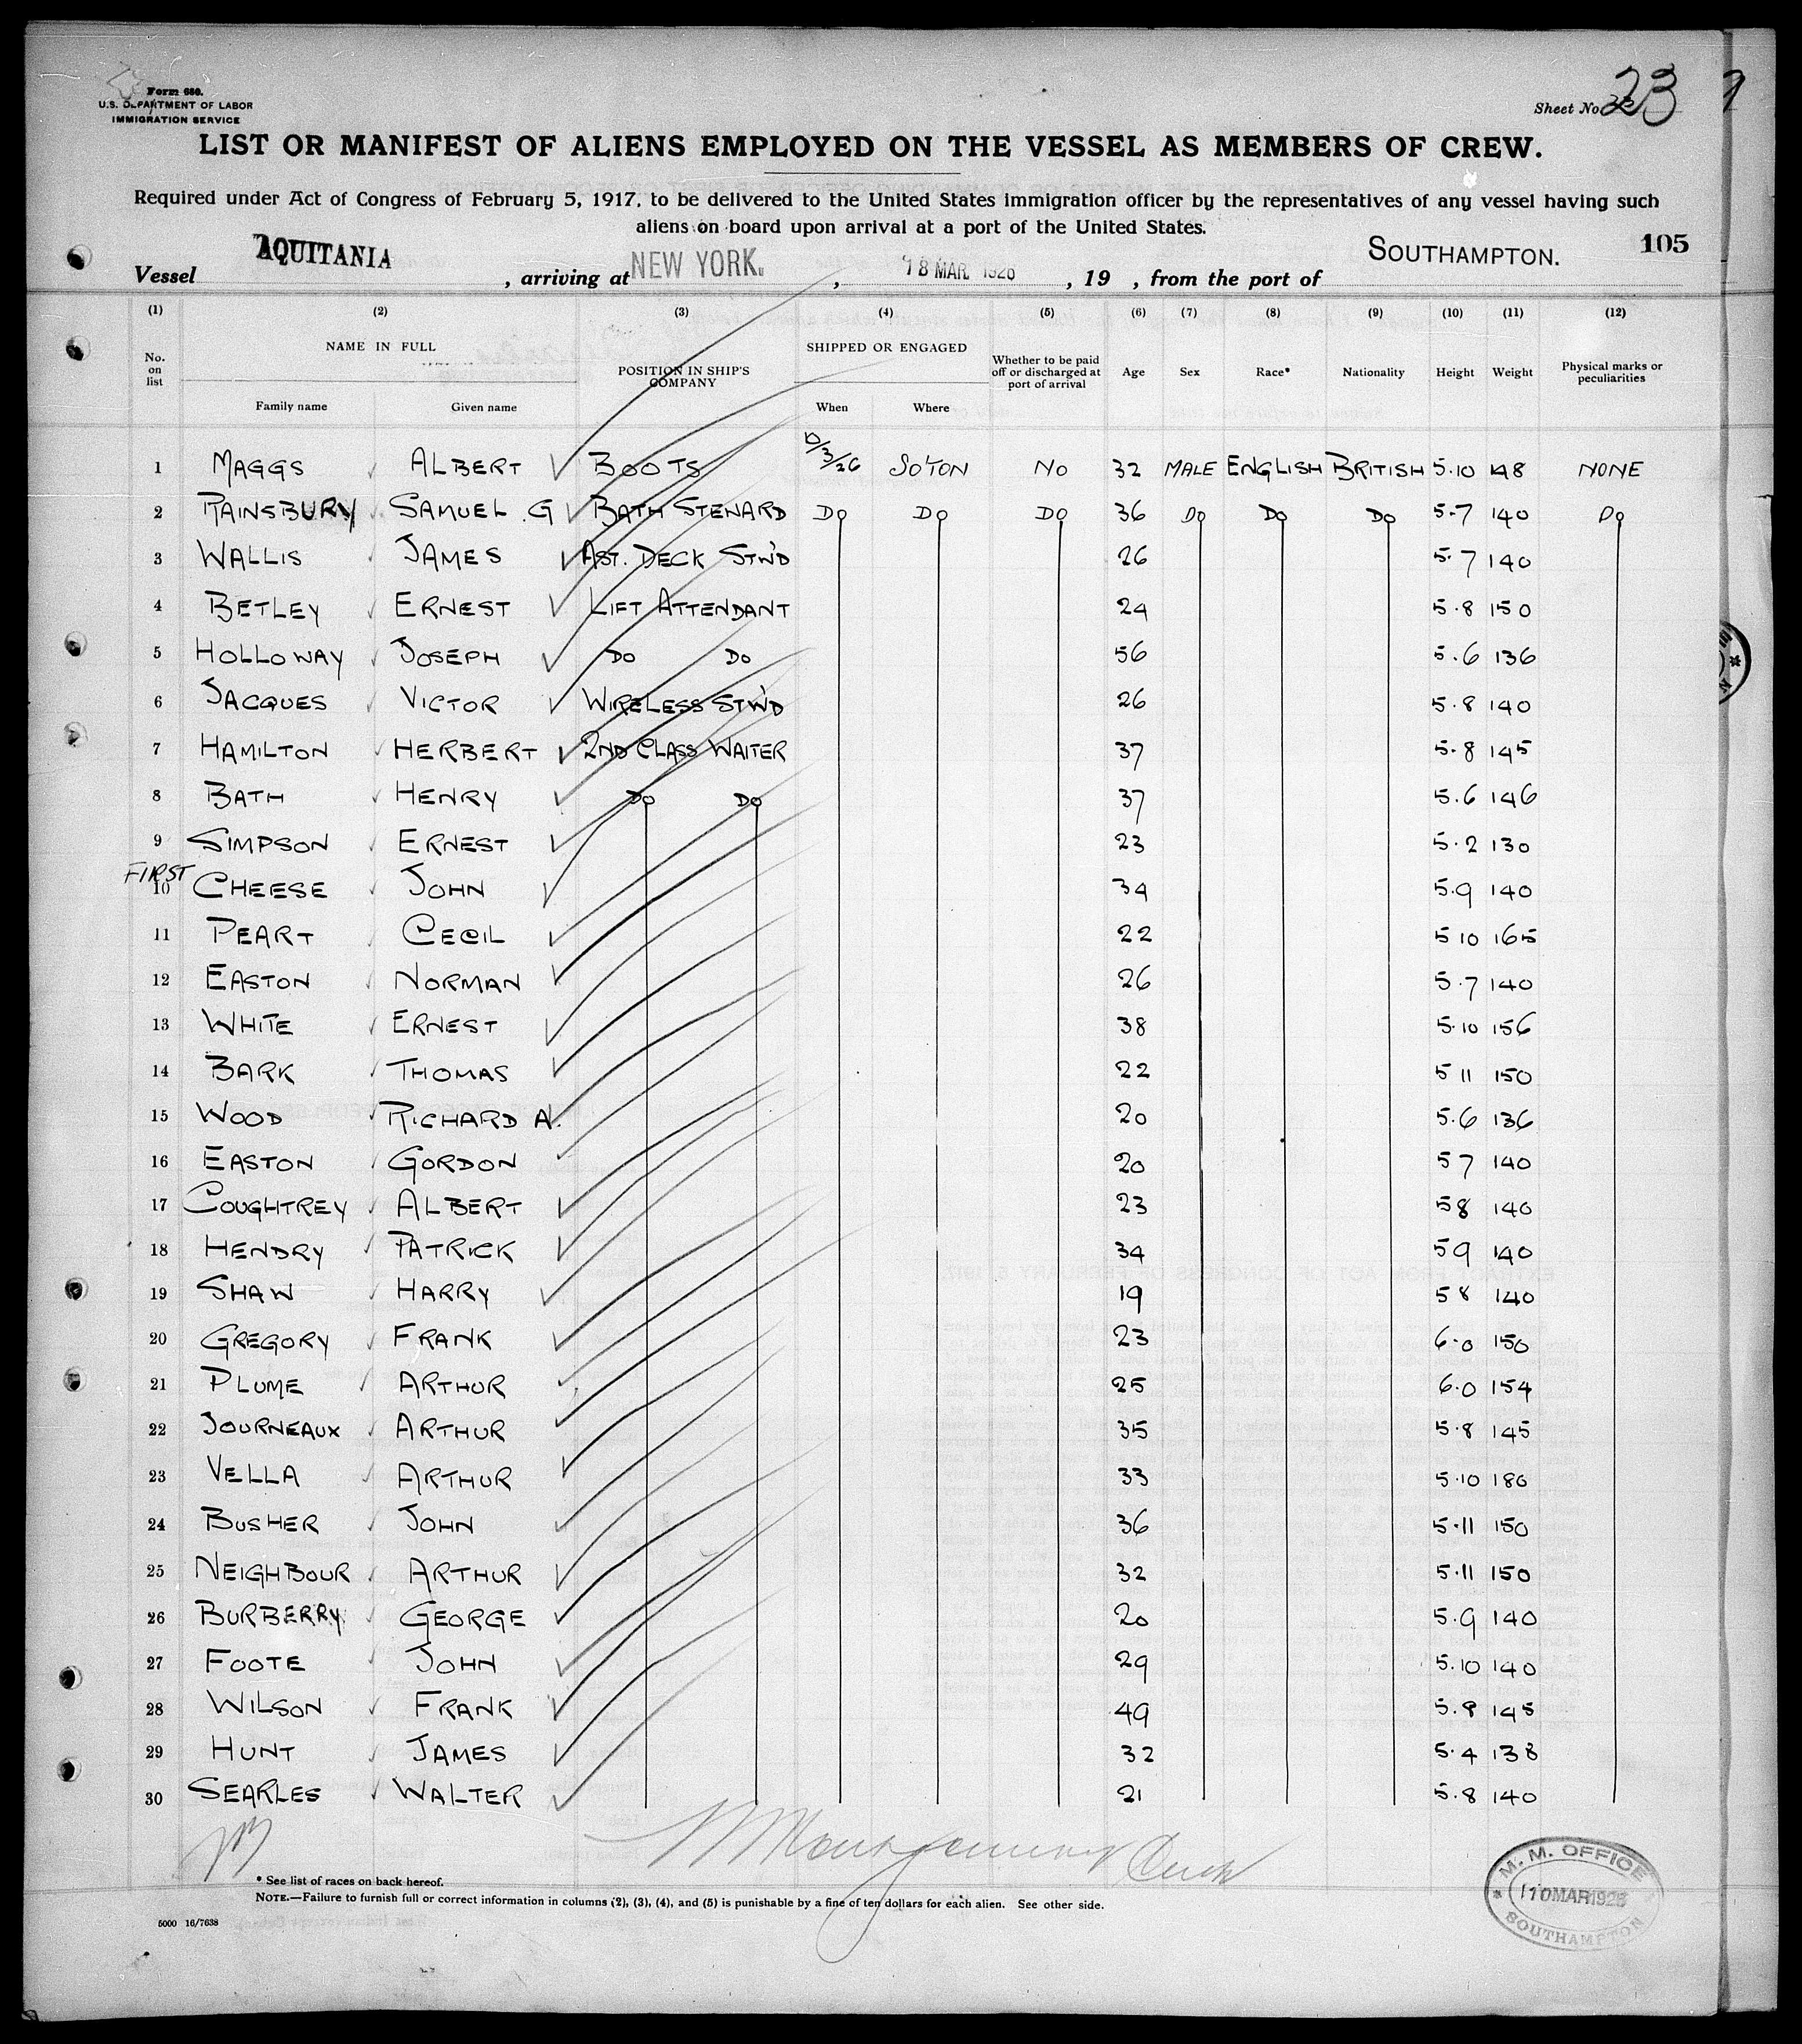 Form 680.
U.S. DEPARTMENT OF LABOR
IMMIGRATION SERVICE
Sheet No. 23
LIST OR MANIFEST OF ALIENS EMPLOYED ON THE VESSEL AS MEMBERS OF CREW.
Required under Act of Congress of February 5, 1917, to be delivered to the United States immigration officer by the representatives of any vessel having such
aliens on board upon arrival at a port of the United States.
105
Vessel AQUITANIA, arriving at NEW YORK., 18 MAR 1926, 19 , from the port of SOUTHAMPTON.
(1) (2) (3) (4) (5) (6) (7) (8) (9) (10) (11) (12)
No. on list NAME IN FULL Family name Given name POSITION IN SHIP'S COMPANY SHIPPED OR ENGAGED When Where Whether to be paid off or discharged at port of arrival Age Sex Race* Nationality Height Weight Physical marks or peculiarities
1 MAGGS ALBERT BOOTS 10/3/26 SO'TON NO 32 MALE ENGLISH BRITISH 5.10 148 NONE
2 RAINSBURY SAMUEL .G BATH STENARD DO DO DO 36 DO DO DO 5.7 140 DO
3 WALLIS JAMES AST. DECK STW'D 26 5.7 140
4 BETLEY ERNEST LIFT ATTENDANT 24 5.8 150
5 HOLLOWAY JOSEPH DO DO 56 5.6 136
6 JACQUES VICTOR WIRELESS STW'D 26 5.8 140
7 HAMILTON HERBERT 2ND CLASS WAITER 37 5.8 145
8 BATH HENRY DO DO 37 5.6 146
9 SIMPSON ERNEST 23 5.2 130
FIRST
10 CHEESE JOHN 34 5.9 140
11 PEART CECIL 22 5 10 165
12 EASTON NORMAN 26 5.7 140
13 WHITE ERNEST 38 5.10 156
14 BARK THOMAS 22 5 11 150
15 WOOD RICHARD A. 20 5.6 136
16 EASTON GORDON 20 5 7 140
17 COUGHTREY ALBERT 23 5 8 140
18 HENDRY PATRICK 34 5 9 140
19 SHAW HARRY 19 5 8 140
20 GREGORY FRANK 23 6.0 150
21 PLUME ARTHUR 25 6.0 154
22 JOURNEAUX ARTHUR 35 5.8 145
23 VELLA ARTHUR 33 5.10 180
24 BUSHER JOHN 36 5.11 150
25 NEIGHBOUR ARTHUR 32 5.11 150
26 BURBERRY GEORGE 20 5.9 140
27 FOOTE JOHN 29 5.10 140
28 WILSON FRANK 49 5.8 145
29 HUNT JAMES 32 5.4 138
30 SEARLES WALTER 21 5.8 140
* See list of races on back hereof.
NOTE.—Failure to furnish full or correct information in columns (2), (3), (4), and (5) is punishable by a fine of ten dollars for each alien. See other side.
5000 16/7638
M. M. OFFICE
10 MAR 1926
SOUTHAMPTON